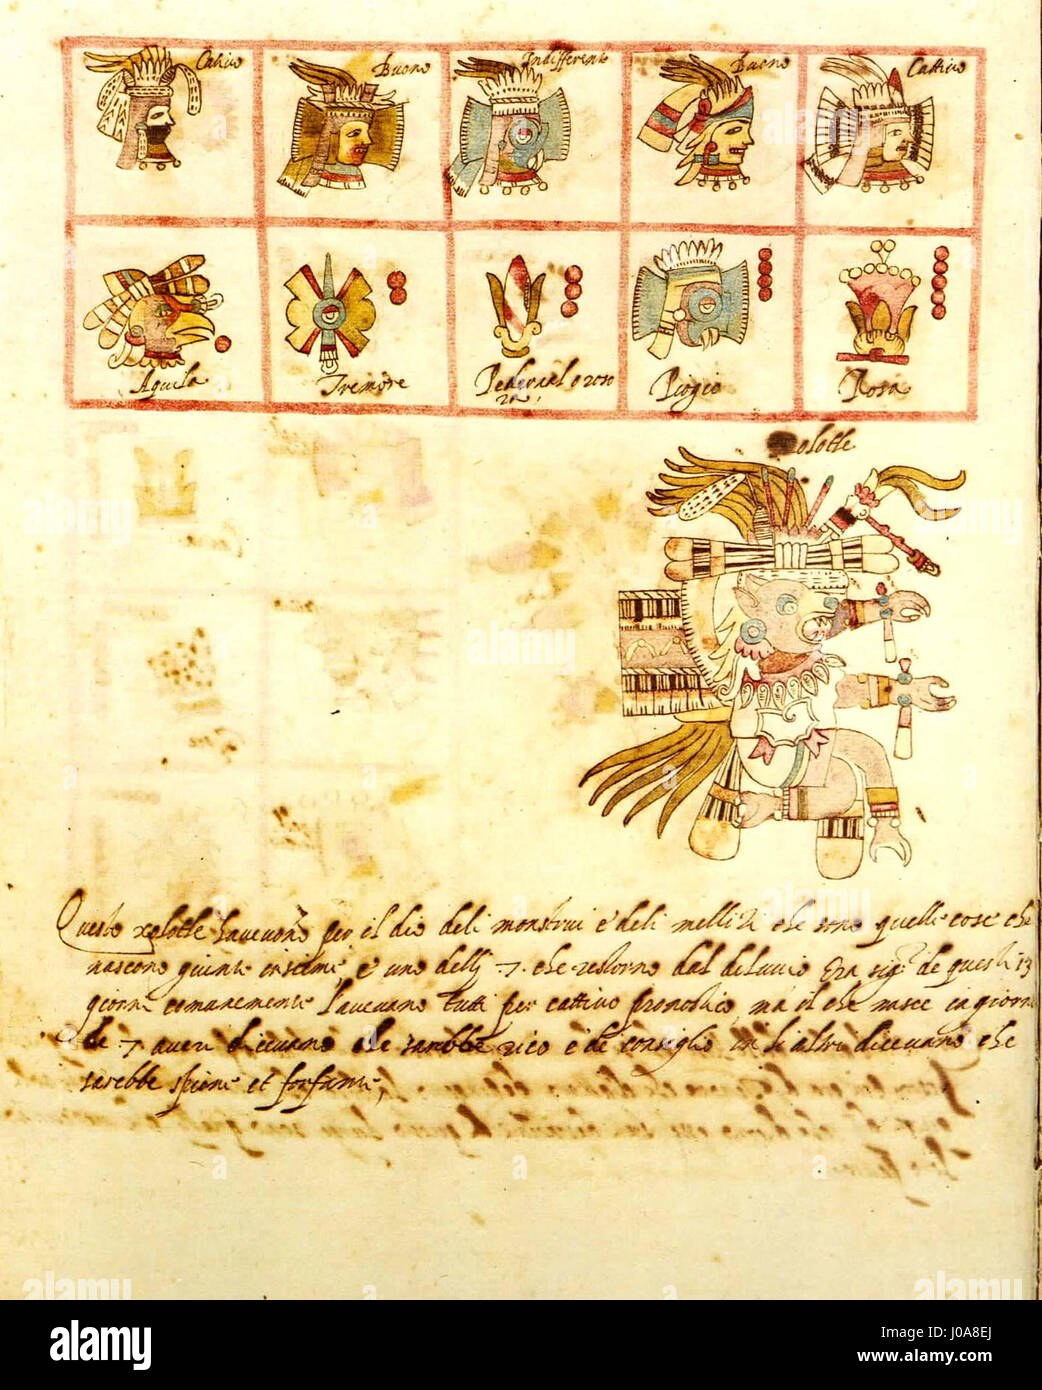 Catiuo Buono Indifferente Buono Cattiuo
Aquila Tremore Pedernal o raso Piogia Rosa
ra,
Xolotle
Questo xolotle haveuono per il dio deli monstrui e deli melliti che sono quelle cose che
nascono giunte insieme, e uno delli 7. che restorno dal diluuio Era sigr. de questi 13
giorni comunemente l'avevano tutti per cattivo pronostico, ma il che nasce in giorno
de 7 averi dicevano che sarebbe rico e de consiglio in li altri dicevano che
sarebbe spione et forfante;
alamy
Image ID: J0A8EJ
www.alamy.com